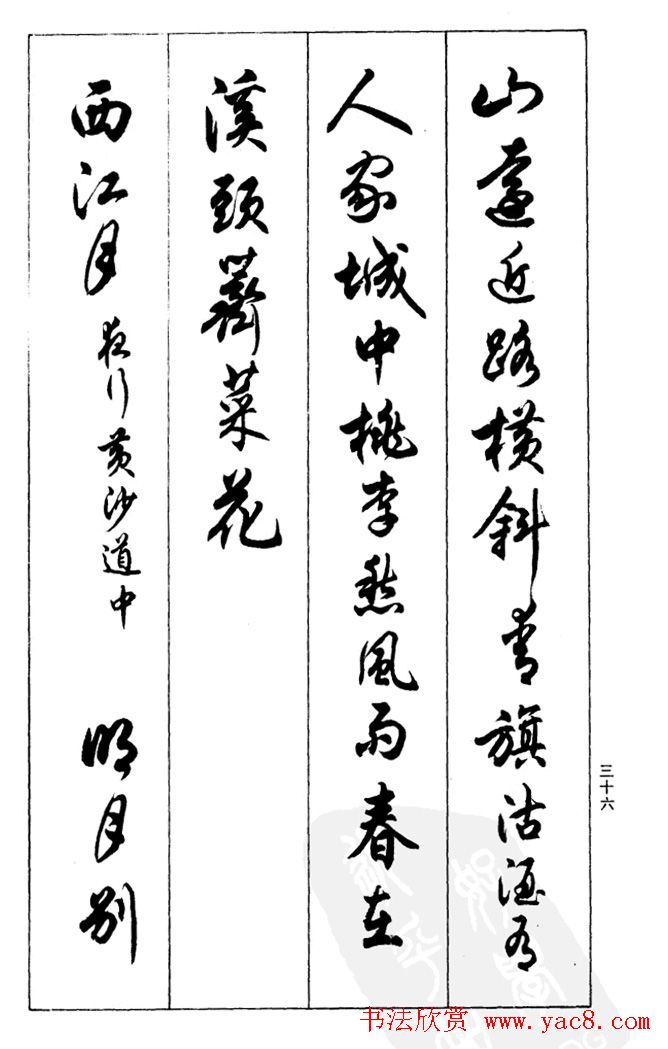 山远近路横斜青旗沽酒有
人家城中桃李愁風雨春在
溪頭薺菜花
西江月 夜行黄沙道中 明月别
三十六
书法欣赏 www.yac8.com